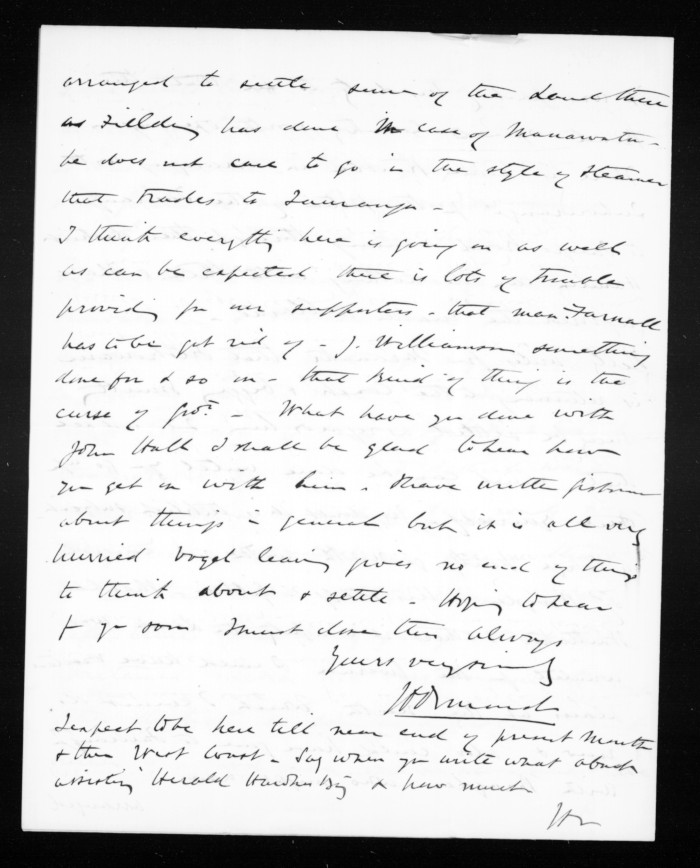 arranged to settle some of the Land there
as Feilding has done in case of Manawatu -
he does not care to go in the style of Steamer
that trades to Tauranga -
I think everything here is going on as well
as can be expected there is lots of trouble
providing for our supporters - that man Farnall
has to be got rid of - J. Williamson something
done for & so on - that kind of thing is the
curse of Govt - What have you done with
John Hall I shall be glad to hear how
you get on with him. I have written Gisborne
about things in general but it is all very
hurried Vogel leaving gives no end of things
to think about & settle - Hoping to hear
fr you soon I must close this Always
Yours very sincly
JDOrmond
I expect to be here till near end of present Month
& then West Coast - Say when you write what about
assisting Herald Hawkes Bay & how much